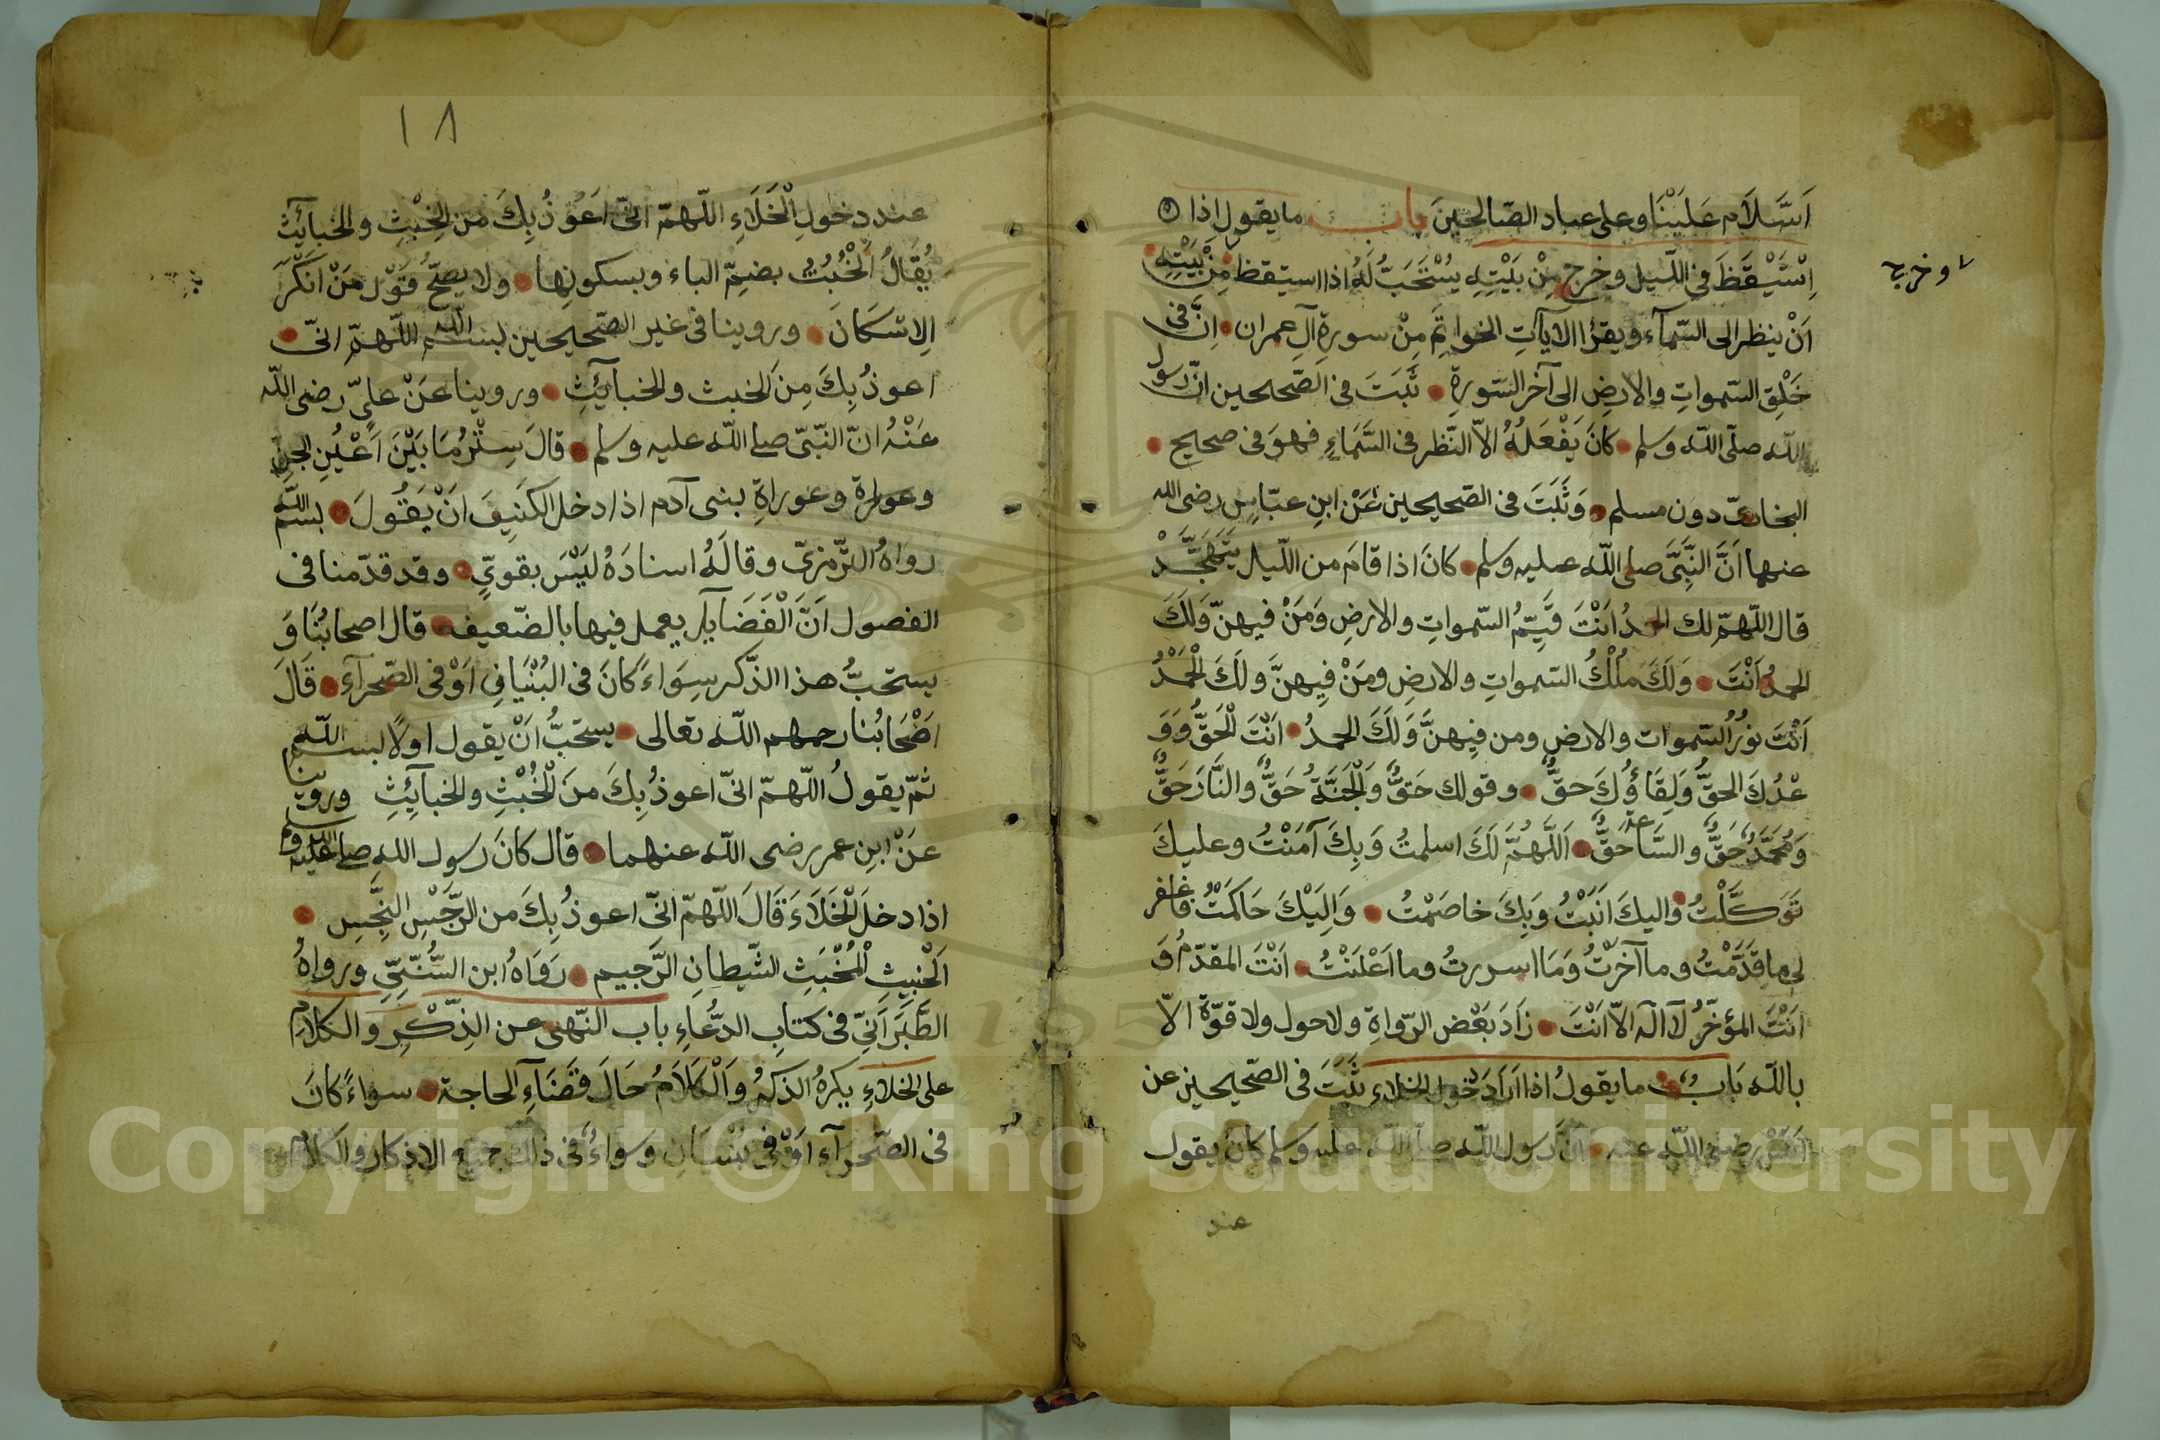 اَلسَّلَام عَلَيْنَا وعلى عباد الصّالحينَ باب ما يقول اذا
اِسْتَيْقَظَ فى اللّيل وخرج مِنْ بَيْتِهِ يُسْتَحَبُّ لَهُ اذا استيقظ مِنْ بَيْتِهِ
وخرج
اَنْ ينظر الى السّمآء ويقرا الايآتِ الخواتِمَ مِنْ سورةِ آلِ عمران اِنَّ فى
خَلْقِ السّموات والارضِ الى آخر السّورةِ ثَبَتَ فى الصّحيحين انّ رسول
اللّه صلّى اللّه وسلم كانَ يَفْعَلُهُ الاّ النّظر فى السَّمَاءِ فهوَ فى صحيح
البخارىّ دون مسلم وَثَبَتَ فى الصّحيحين عَنْ ابنِ عبّاسٍ رضى الله
عنهما اَنَّ النَّبِىَّ صلى اللّه عليه وسلم كانَ اذا قامَ من اللّيل يَتَهَجَّدْ
قال اللّهمّ لك الحمدُ اَنْتَ قَيِّمُ السّمواتِ والارضِ وَمَنْ فيهنّ وَلَكَ
الحمدُ اَنْتَ وَلَكَ مُلْكُ السّمواتِ والارضِ ومَنْ فِيهنَّ ولَكَ الْحَمْدُ
اَنْتَ نُورُ السّموات والارض ومن فِيهنَّ وَلَكَ الحمدُ انْتَ الْحَقُّ وَوَ
عْدُكَ الحقُّ وَلِقَاؤُكَ حقٌّ وقولك حَقٌّ وَالْجَنَّةُ حَقٌّ والنَّارَ حَقٌّ
وَمُحَمَّدٌ حَقٌّ والسَّاعة حَقٌّ اَللَّهُمَّ لَكَ اسلمتُ وَبِكَ آمَنْتُ وعليكَ
تَوَكَّلْتُ واليكَ اَنَبْتُ وَبِكَ خاصَمْتُ وَاِلَيْكَ حَاكَمْتُ فاغفر
لى ما قَدَّمْتُ وما آخرْتُ وَمَا اسررتُ وما اَعْلَنْتُ اَنْتَ المقدّمُ وَ
انْتَ المؤخّرُ لآ الَه الاّ اَنْتَ زَادَ بَعْض الرّواةِ ولاحول ولا قوّةَ الاّ
باللّه بَابُ ما يقولُ اذا اَرَادَ دخول الخلاء ثَبَتَ فى الصّحيحين عن
اَنَسٍ رضى اللّه عنه انّ رسول اللّه صلّى اللّه عليه وسلم كانَ يقول
عند
١٨
عند دخولِ الْخَلَاءِ اللّهمّ انّى اَعُوْذُ بِكَ مِن الخُبْثِ والخبآئِث
يُقَالُ اَلْخُبُثُ بضمّ الباء وبسكونها ولا يصحّ قَوْل مَنْ انكْرَ
الاسْكَانَ وروينا فى غير الصّحيحين بسم اللّه اللّهمّ انّى
اعوذُ بِكَ مِنَ الخبث والخبآئِثِ وروينا عَنْ علىٍّ رضى اللّه
عَنْهُ انّ النّبىّ صلى اللّه عليه وسلم قالَ سِتْرُ مَا بَيْنَ اَعْيُنِ الجِنّ
وعوراة بنى آدم اذا دخل الكَنِيفَ اَنْ يَقُولَ بسم اللّه
رواهُ التّرمزىّ وقالَهُ اسنادَهُ لَيْسَ بقوىٍّ وقد قدّمنا فى
الفصول اَنَّ الْفَضَآيل يعمل فيها بالضّعيف قال اصحابُنَا وَ
يستحبُّ هذا الذّكر سِوَاءً كانَ فى الْبُنْيَانِ اَوْ فى الصّحرآءِ قَالَ
اَصْحَابُنا رحمهم اللّه تعالى يستحبُّ اَنْ يقول اولًا بسم اللّه
ثمّ يقولُ اللّهمّ انّى اعوذُ بِكَ منَ الْخُبْثِ والخبآئِثِ وروينا
عَنْ ابنِ عمر رضى اللّه عنهما قال كانَ رسول الله صلى عليه وسلم
اذا دخلَ الْخَلَاءَ قَالَ اللّهمّ انّى اعوذُ بِكَ من الرّجْسِ النِّجَسِ
اَلْخبيثِ الْمُخْبَثِ الشّيطانِ الرَّجيم رَوَاهُ ابن السُّنّيِّ ورواهُ
الطَّبَرَانِىِّ فى كتابِ الدعُاءِ باب النّهى عن الذِّكْرِ وَالكلامِ
على الخلاءِ يكرهُ الذكرُ وَالْكَلَامُ حَالَ قَضَآءِ الحاجة سواءً كانَ
فى الصّحرآءِ اَوْ فى بُنْيَانِ وسَواءٌ فى ذلك جميع الاذكار والكلام
Copyright © King Saud University